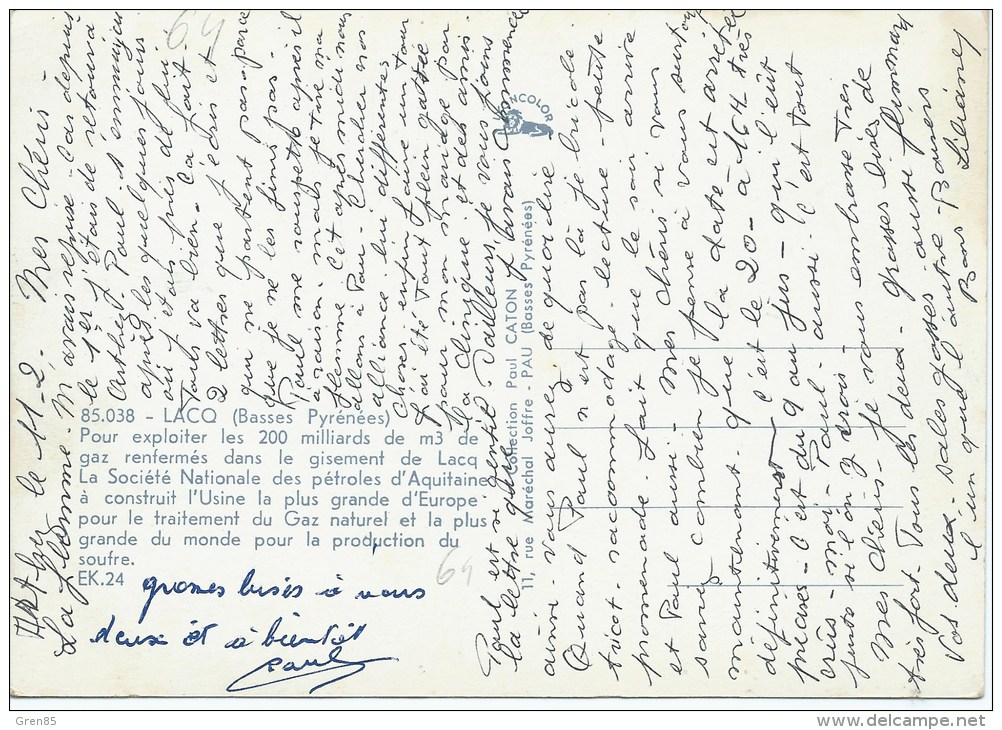 Artix le 11-2. Mes Chéris
La flemme. M'avais reprise. Car depuis
le 1er j'étais de retour à
Arthez Paul s'ennuyer
après les quelques jours
oui et tous près de lui
Tous va bien. Ca fait
2 lettres que j'écris et
qui ne partent pas parce
que je ne les finis pas.
Paul me rouspette après il
à raison. mais je tiens ma
flemme. Cet après midi nous
allons à Pau. Chercher nos
alliance lui différentes
choses enfin faire un tour
J'ai été Tout plein gatée
pour mon mange par
la dingue et des amis
Paul est si gentil d'ailleurs, je vous joins
la lettre qu'il y avait commencé
ainsi vous de quoi lire
Quand Paul n'est pas là je bricole
tricot - raccommodage - lecture - petite
promenade. fait que le soir arrive
et Paul aussi - Mes chéris si vous
saviez combien je pense à vous surtout
maintenant. que la date est arrêtée
définitivement c'est le 20 - à 16H très
précises - C'est du qui au jus - qu'il est
cuis - moi - Paul - aussi. C'est tout
juste si l'on y crois
Mes chéris - Je vous embrasse Tres
très fort. Tous les deux. grosses bises de
Vos deux sales gosses aussi flemmary
l'un que l'autre - Baisers
Bons Liliane
85.038 - LACQ (Basses Pyrénées)
Pour exploiter les 200 milliards de m3 de
gaz renfermés dans le gisement de Lacq
La Société Nationale des pétroles d'Aquitaine
à construit l'Usine la plus grande d'Europe
pour le traitement du Gaz naturel et la plus
grande du monde pour la production du
soufre.
EK.24
grosses bises à vous
deux et à bientôt
Paul
Collection Paul CATON
11, rue Maréchal Joffre - PAU (Basses Pyrénées)
64
64
Gren85
delcampe.net